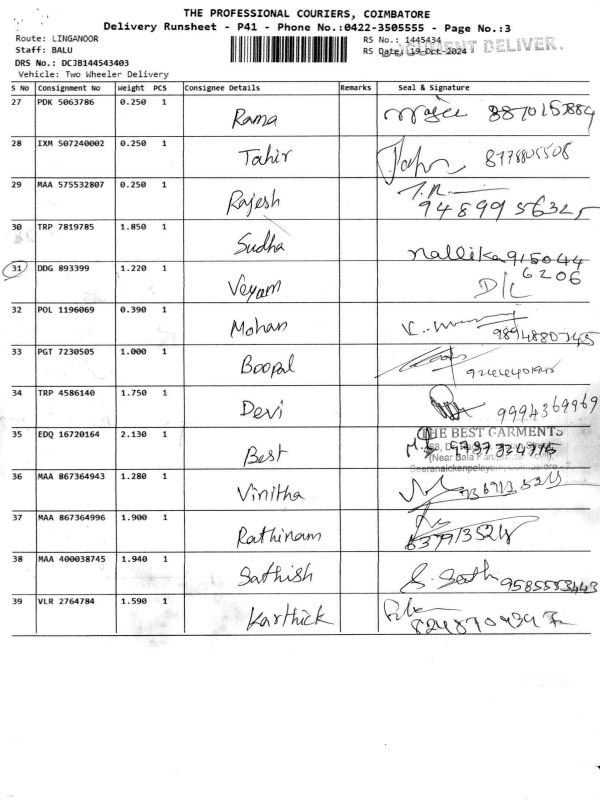 THE PROFESSIONAL COURIERS, COIMBATORE
Delivery Runsheet - P41 - Phone No.:0422-3505555 - Page No.:3
Route: LINGANOOR
RS No.: 1445434
Staff: BALU
RS Date: 19-Oct-2024
DOCUMENT DELIVER.
DRS No.: DCJB144543403
Vehicle: Two Wheeler Delivery
S No Consignment No Weight PCS Consignee Details Remarks Seal & Signature
27 PDK 5063786 0.250 1 Rama
28 IXM 507240002 0.250 1 Tahir 8778805508
29 MAA 575532807 0.250 1 Rajesh
30 TRP 7819785 1.850 1 Sudha Mallika 915044
6206
31 DDG 893399 1.220 1 Veyam D/C
32 POL 1196069 0.390 1 Mohan 9894880745
33 PGT 7230505 1.000 1 Boopal
34 TRP 4586140 1.750 1 Devi 9994369969
THE BEST GARMENTS
35 EDQ 16720164 2.130 1 Best
(Near Bala
36 MAA 867364943 1.280 1 Vinitha
37 MAA 867364996 1.900 1 Rathinam
38 MAA 400038745 1.940 1 Sathish S. Sath 9585583443
39 VLR 2764784 1.590 1 Karthick